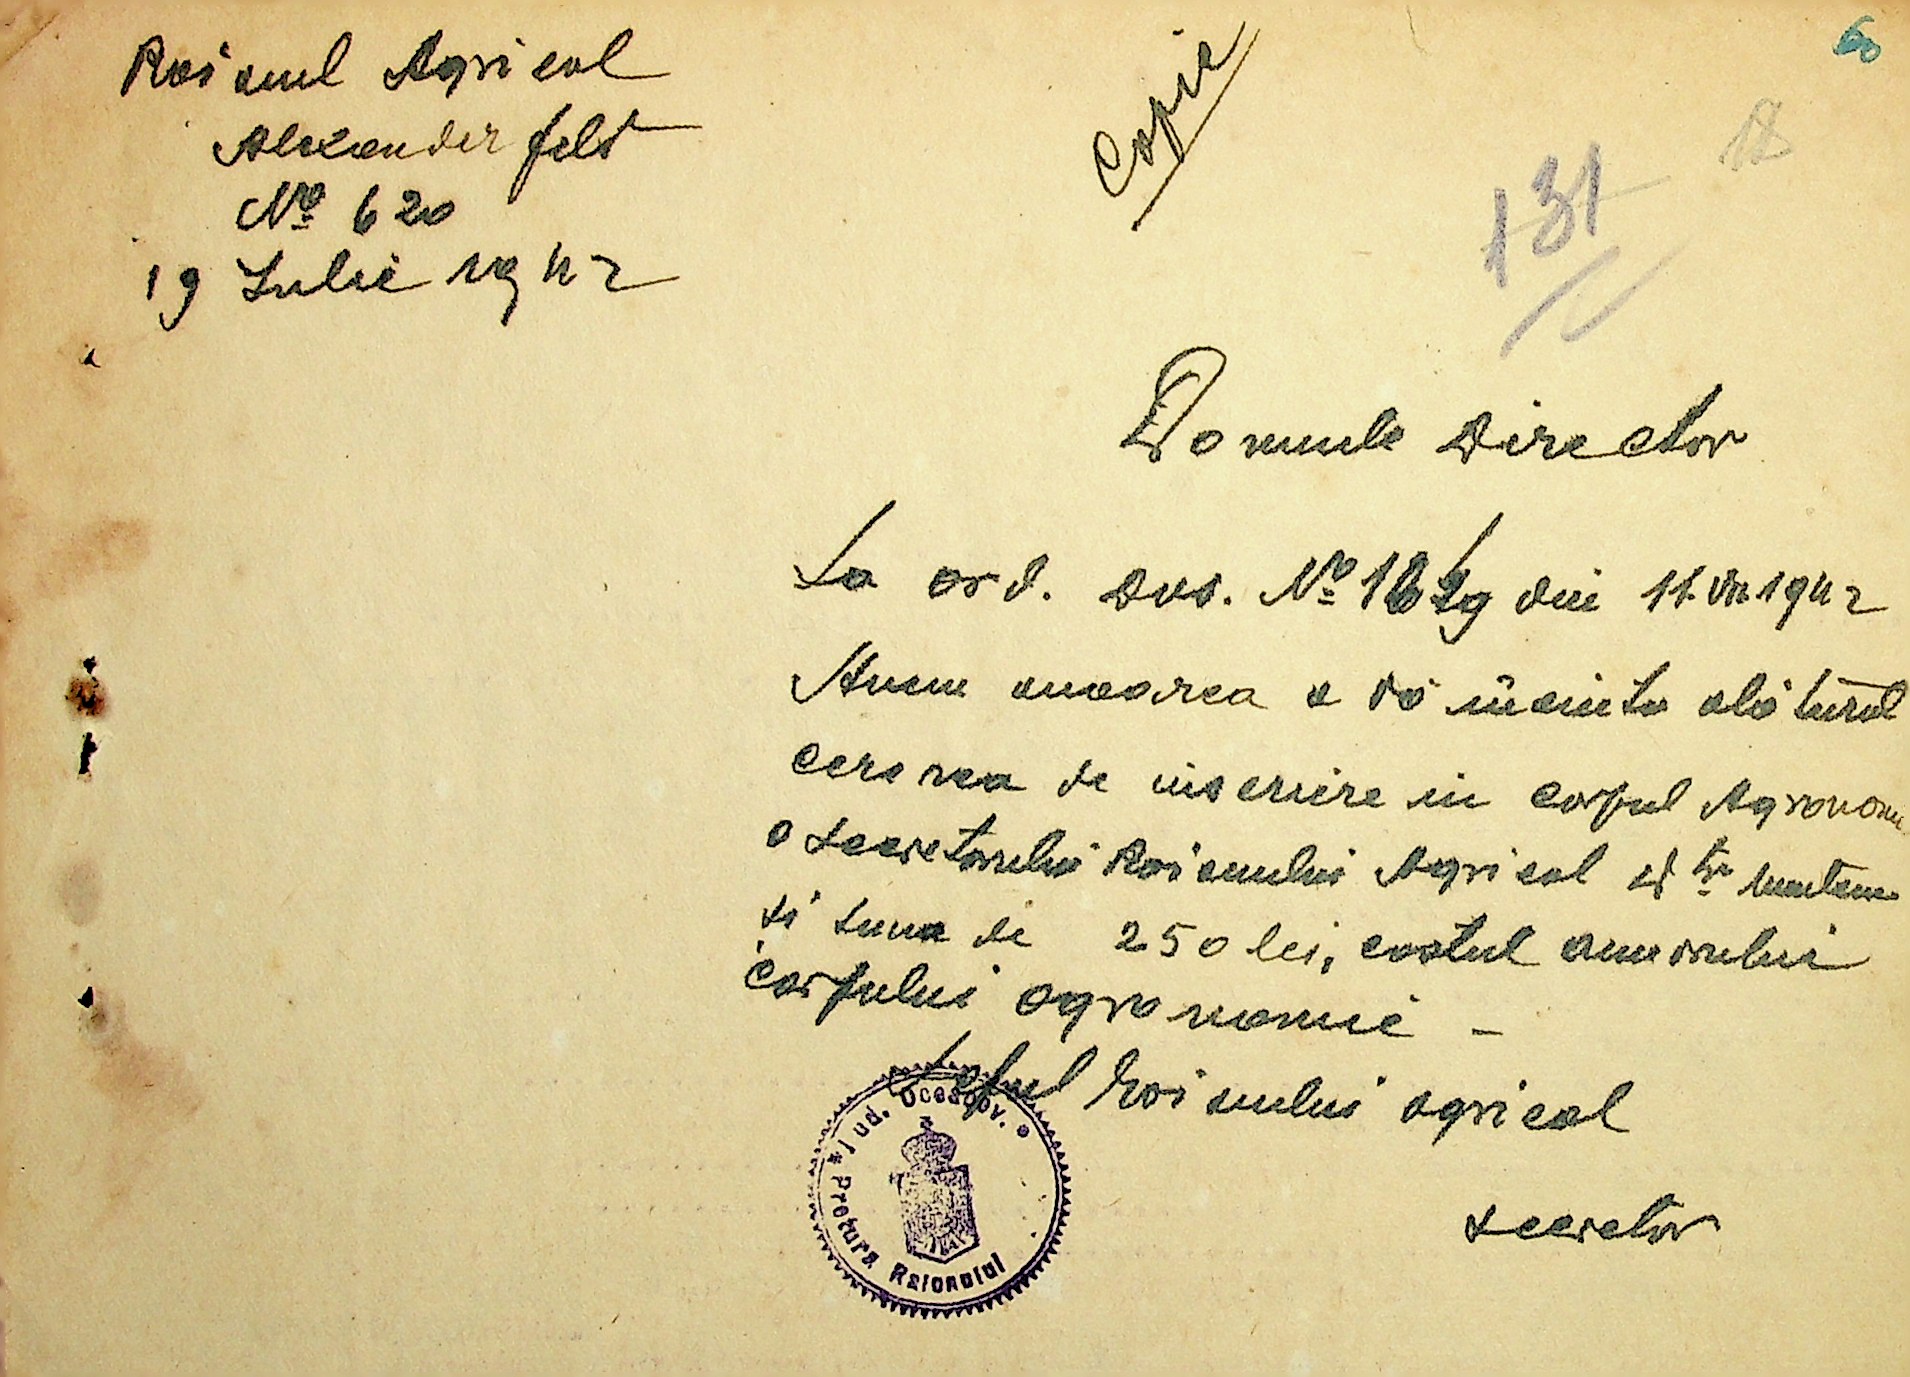 Raionul Agricol
Alexanderfeld
No 620
19 Iulie 1942
Copie
60
131
Domnule Director
La ord. Dvs. No din 11.VII.1942
Avem onoarea a vă înainta alăturat
cererea de inscriere in corpul Agronomic
a secretarului Raionului Agricol
si suma de 250 lei, costul anuarului
corpului agronomic -
Șeful Raionului agricol
secretar
* Jud. Oceacov. *
Pretura Raionului